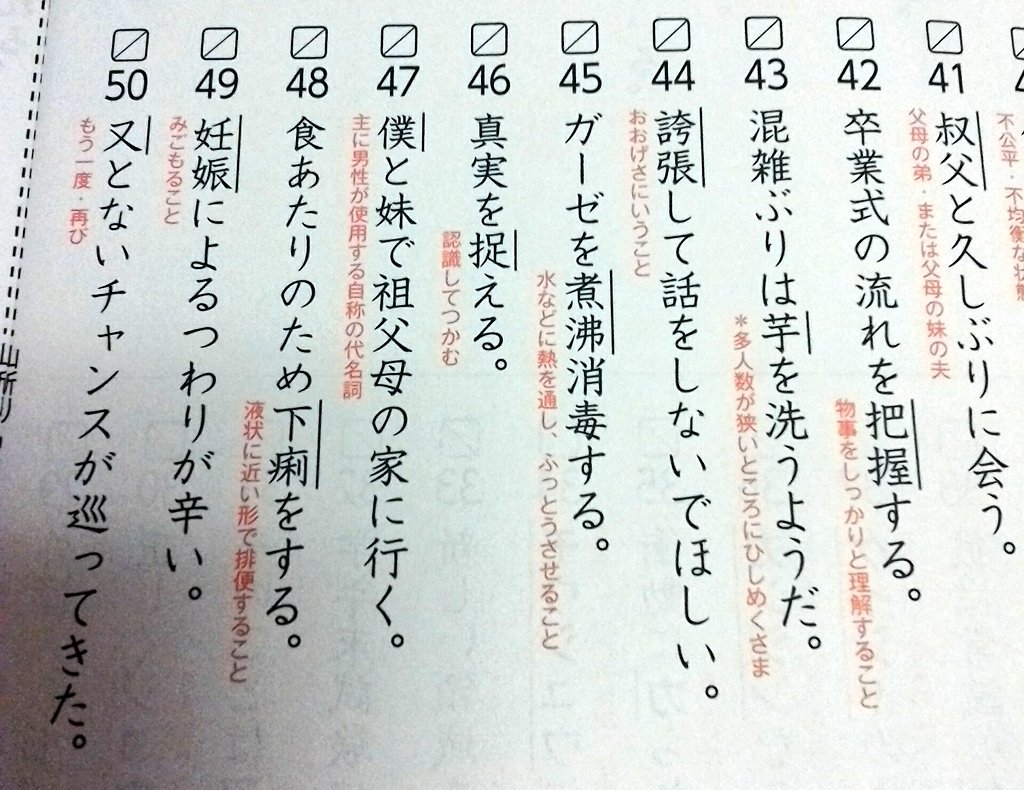 不公平・不均衡な状態
41
叔父と久しぶりに会う。
父母の弟・または父母の妹の夫
42
卒業式の流れを把握する。
物事をしっかりと理解すること
43
混雑ぶりは芋を洗うようだ。
＊多人数が狭いところにひしめくさま
44
誇張して話をしないでほしい。
おおげさにいうこと
45
ガーゼを煮沸消毒する。
水などに熱を通し、ふっとうさせること
46
真実を捉える。
認識してつかむ
47
僕と妹で祖父母の家に行く。
主に男性が使用する自称の代名詞
48
食あたりのため下痢をする。
液状に近い形で排便すること
49
妊娠によるつわりが辛い。
みごもること
50
又とないチャンスが巡ってきた。
もう一度・再び